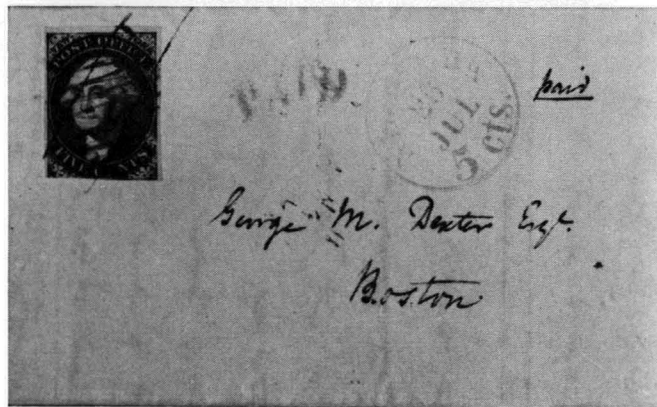 POST OFFICE
FIVE CENTS.
PAID
26
JUL
5 cts.
paid
George M. Dexter Esqr.
Boston